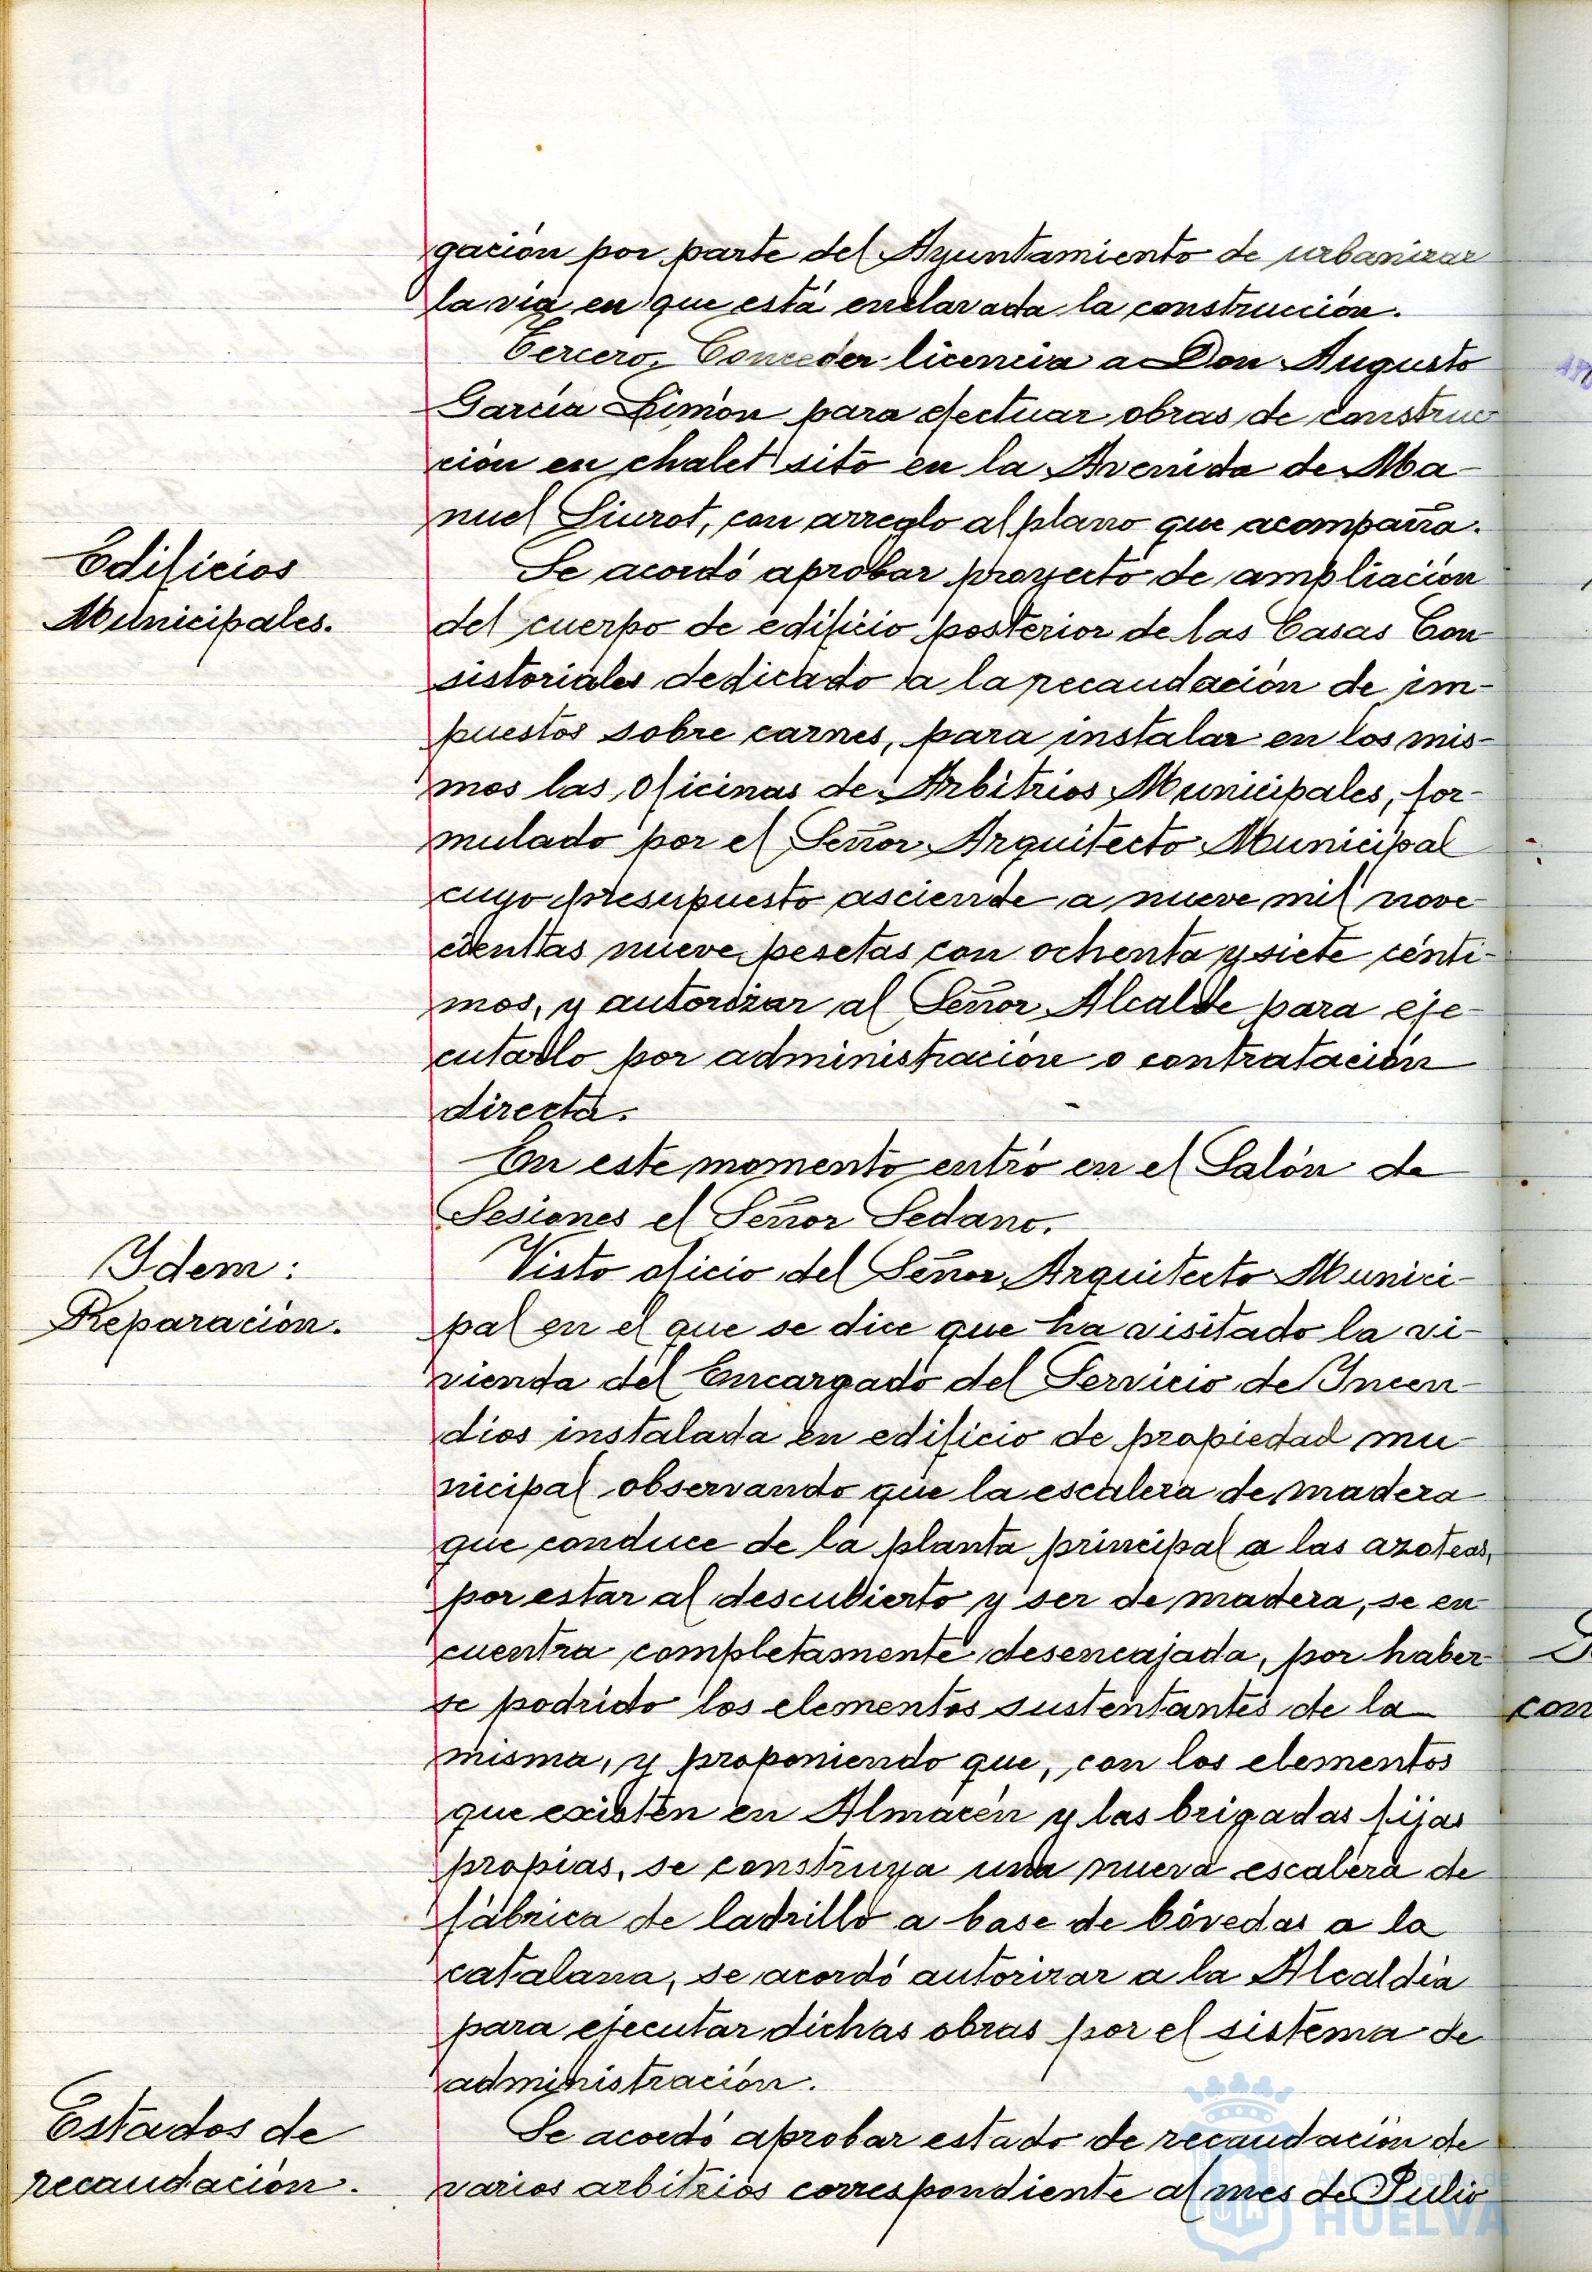 gación por parte del Ayuntamiento de urbanizar
la via en que está enclavada la construcción.
Tercero. Conceder licencia a Don Augusto
García Simón para efectuar obras de construc
ción en chalet sito en la Avenida de Ma-
nuel Siurot, con arreglo al plano que acompaña.
Edificios
Municipales.
Se acordó aprobar proyecto de ampliación
del cuerpo de edificio posterior de las Casas Con
sistoriales dedicado a la recaudación de im-
puestos sobre carnes, para instalar en los mis-
mos las oficinas de Arbitrios Municipales, for-
mulado por el Señor Arquitecto Municipal
cuyo presupuesto asciende a nueve mil nove
cientas nueve pesetas con ochenta y siete cénti-
mos, y autorizar al Señor Alcalde para eje-
cutarlo por administración o contratación
directa.
En este momento entró en el Salón de
Sesiones el Señor Sedano.
Idem:
Reparación.
Visto oficio del Señor Arquitecto Munici-
pal en el que se dice que ha visitado la vi-
vienda del Encargado del Servicio de Incen-
dios instalada en edificio de propiedad mu-
nicipal observando que la escalera de madera
que conduce de la planta principal a las azoteas,
por estar al descubierto y ser de madera, se en
cuentra completamente desencajada, por haber-
se podrido los elementos sustentantes de la
misma, y proponiendo que, con los elementos
que existen en Almacén y las brigadas fijas
propias, se construya una nueva escalera de
fábrica de ladrillo a base de bóvedas a la
catalana, se acordó autorizar a la Alcaldía
para ejecutar dichas obras por el sistema de
administración.
Estados de
recaudación.
Se acordó aprobar estado de recaudación de
varios arbitrios correspondiente al mes de Julio
con
Ayuntamiento de
HUELVA